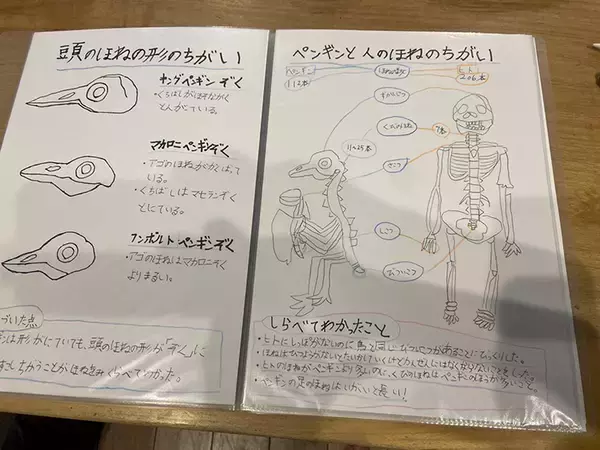 頭のほねの形のちがい
キングペンギンぞく
・くちばしがほそながく
とんがている。
マカロニペンギンぞく
・アゴのほねがかくばって
いる。
・くちばしはマゼランぞく
とにている。
フンボルトペンギンぞく
・アゴのほねはマカロニぞく
よりまるい。
づいた点
は形がにていても、頭のほねの形が「ぞく」に
すこしちがうことが
くらべてわかった。
ペンギンと人のほねのちがい
ペンギン
112本
ほねのかず
ヒト
206本
ずがいこつ
11〜25本
7本
さこつ
しこつ
びついこつ
しらべてわかったこと
・ヒトにしっぽがないのに鳥と同じびついこつがあることにびっくりした。
・ヒトのほねがペンギンより多いのに、くびのほねはペンギンのほうが多いこと。
・ペンギンの足のほねはいがいと長い!